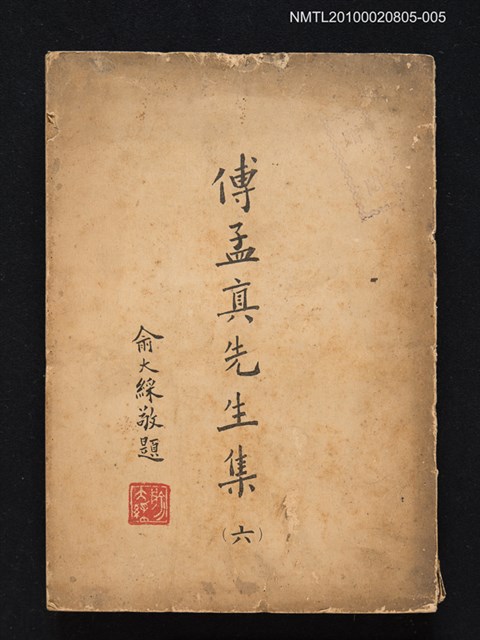 NMTL20100020805-005
傅孟真先生集
（六）
俞大綵敬題